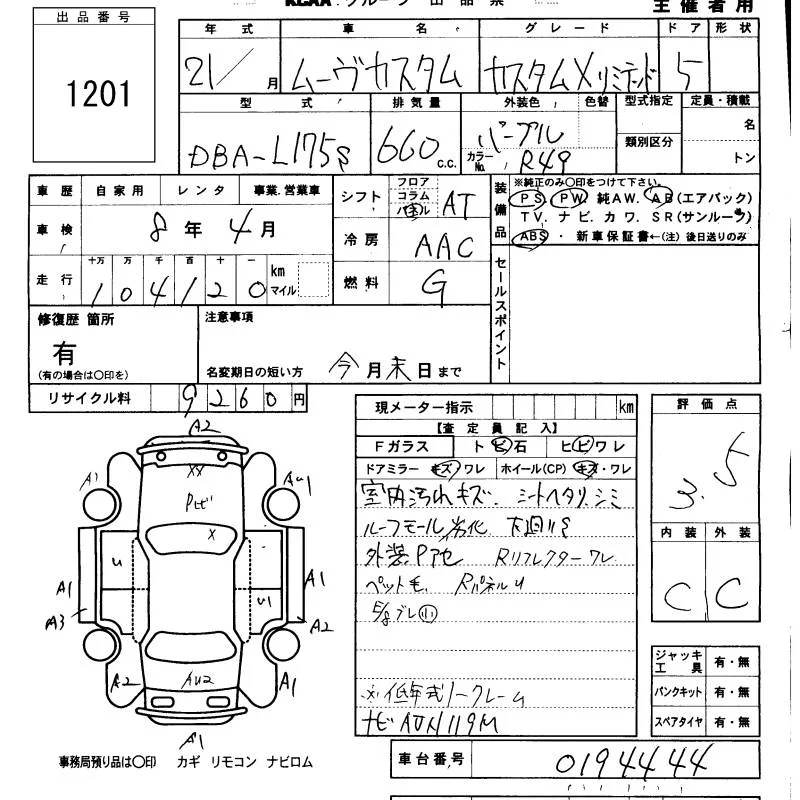 KCAA グループ 出品票 主催者用
出品番号
1201
年式 車名 グレード ドア 形状
21/ 月 ムーヴカスタム カスタムXリミテッド 5
型式 排気量 外装色 色替 型式指定 定員・積載
DBA-L175S 660 c.c. パープル 類別区分 名
カラーNo. R49 トン
車歴 自家用 レンタ 事業.営業車
車検 8年 4月
走行 十万 万 千 百 十 一
1 0 4 1 2 0 km マイル
シフト フロア コラム パネル AT
冷房 AAC
燃料 G
装備品 ※純正のみ〇印をつけて下さい。
PS. PW. 純AW. AB(エアバック)
TV. ナビ. カワ. SR(サンルーフ)
ABS ・ 新車保証書←(注) 後日送りのみ
セールスポイント
修復歴 箇所
有
(有の場合は〇印を)
注意事項
名変期日の短い方 今月末日まで
リサイクル料 9260円
現メーター指示 km
【査定員記入】
Fガラス トビ石 ヒビワレ
ドアミラー キズ・ワレ ホイール(CP) キズ・ワレ
室内汚れキズ. シートヘタリ.シミ
ルーフモール劣化 下廻りS
外装Pアセ Rリフレクターワレ
ペット毛 RパネルU
E/gブレ㊥
※低年式ノークレーム
ナビAON119M
評価点
3.5
内装 外装
C C
ジャッキ工具 有・無
パンクキット 有・無
スペアタイヤ 有・無
A2
A1
XX
Pヒビ
AU1
X
U
A1
A1
U1
A3
A2
A2
AU2
A1
A1
事務局預り品は〇印 カギ リモコン ナビロム
車台番号 0194444